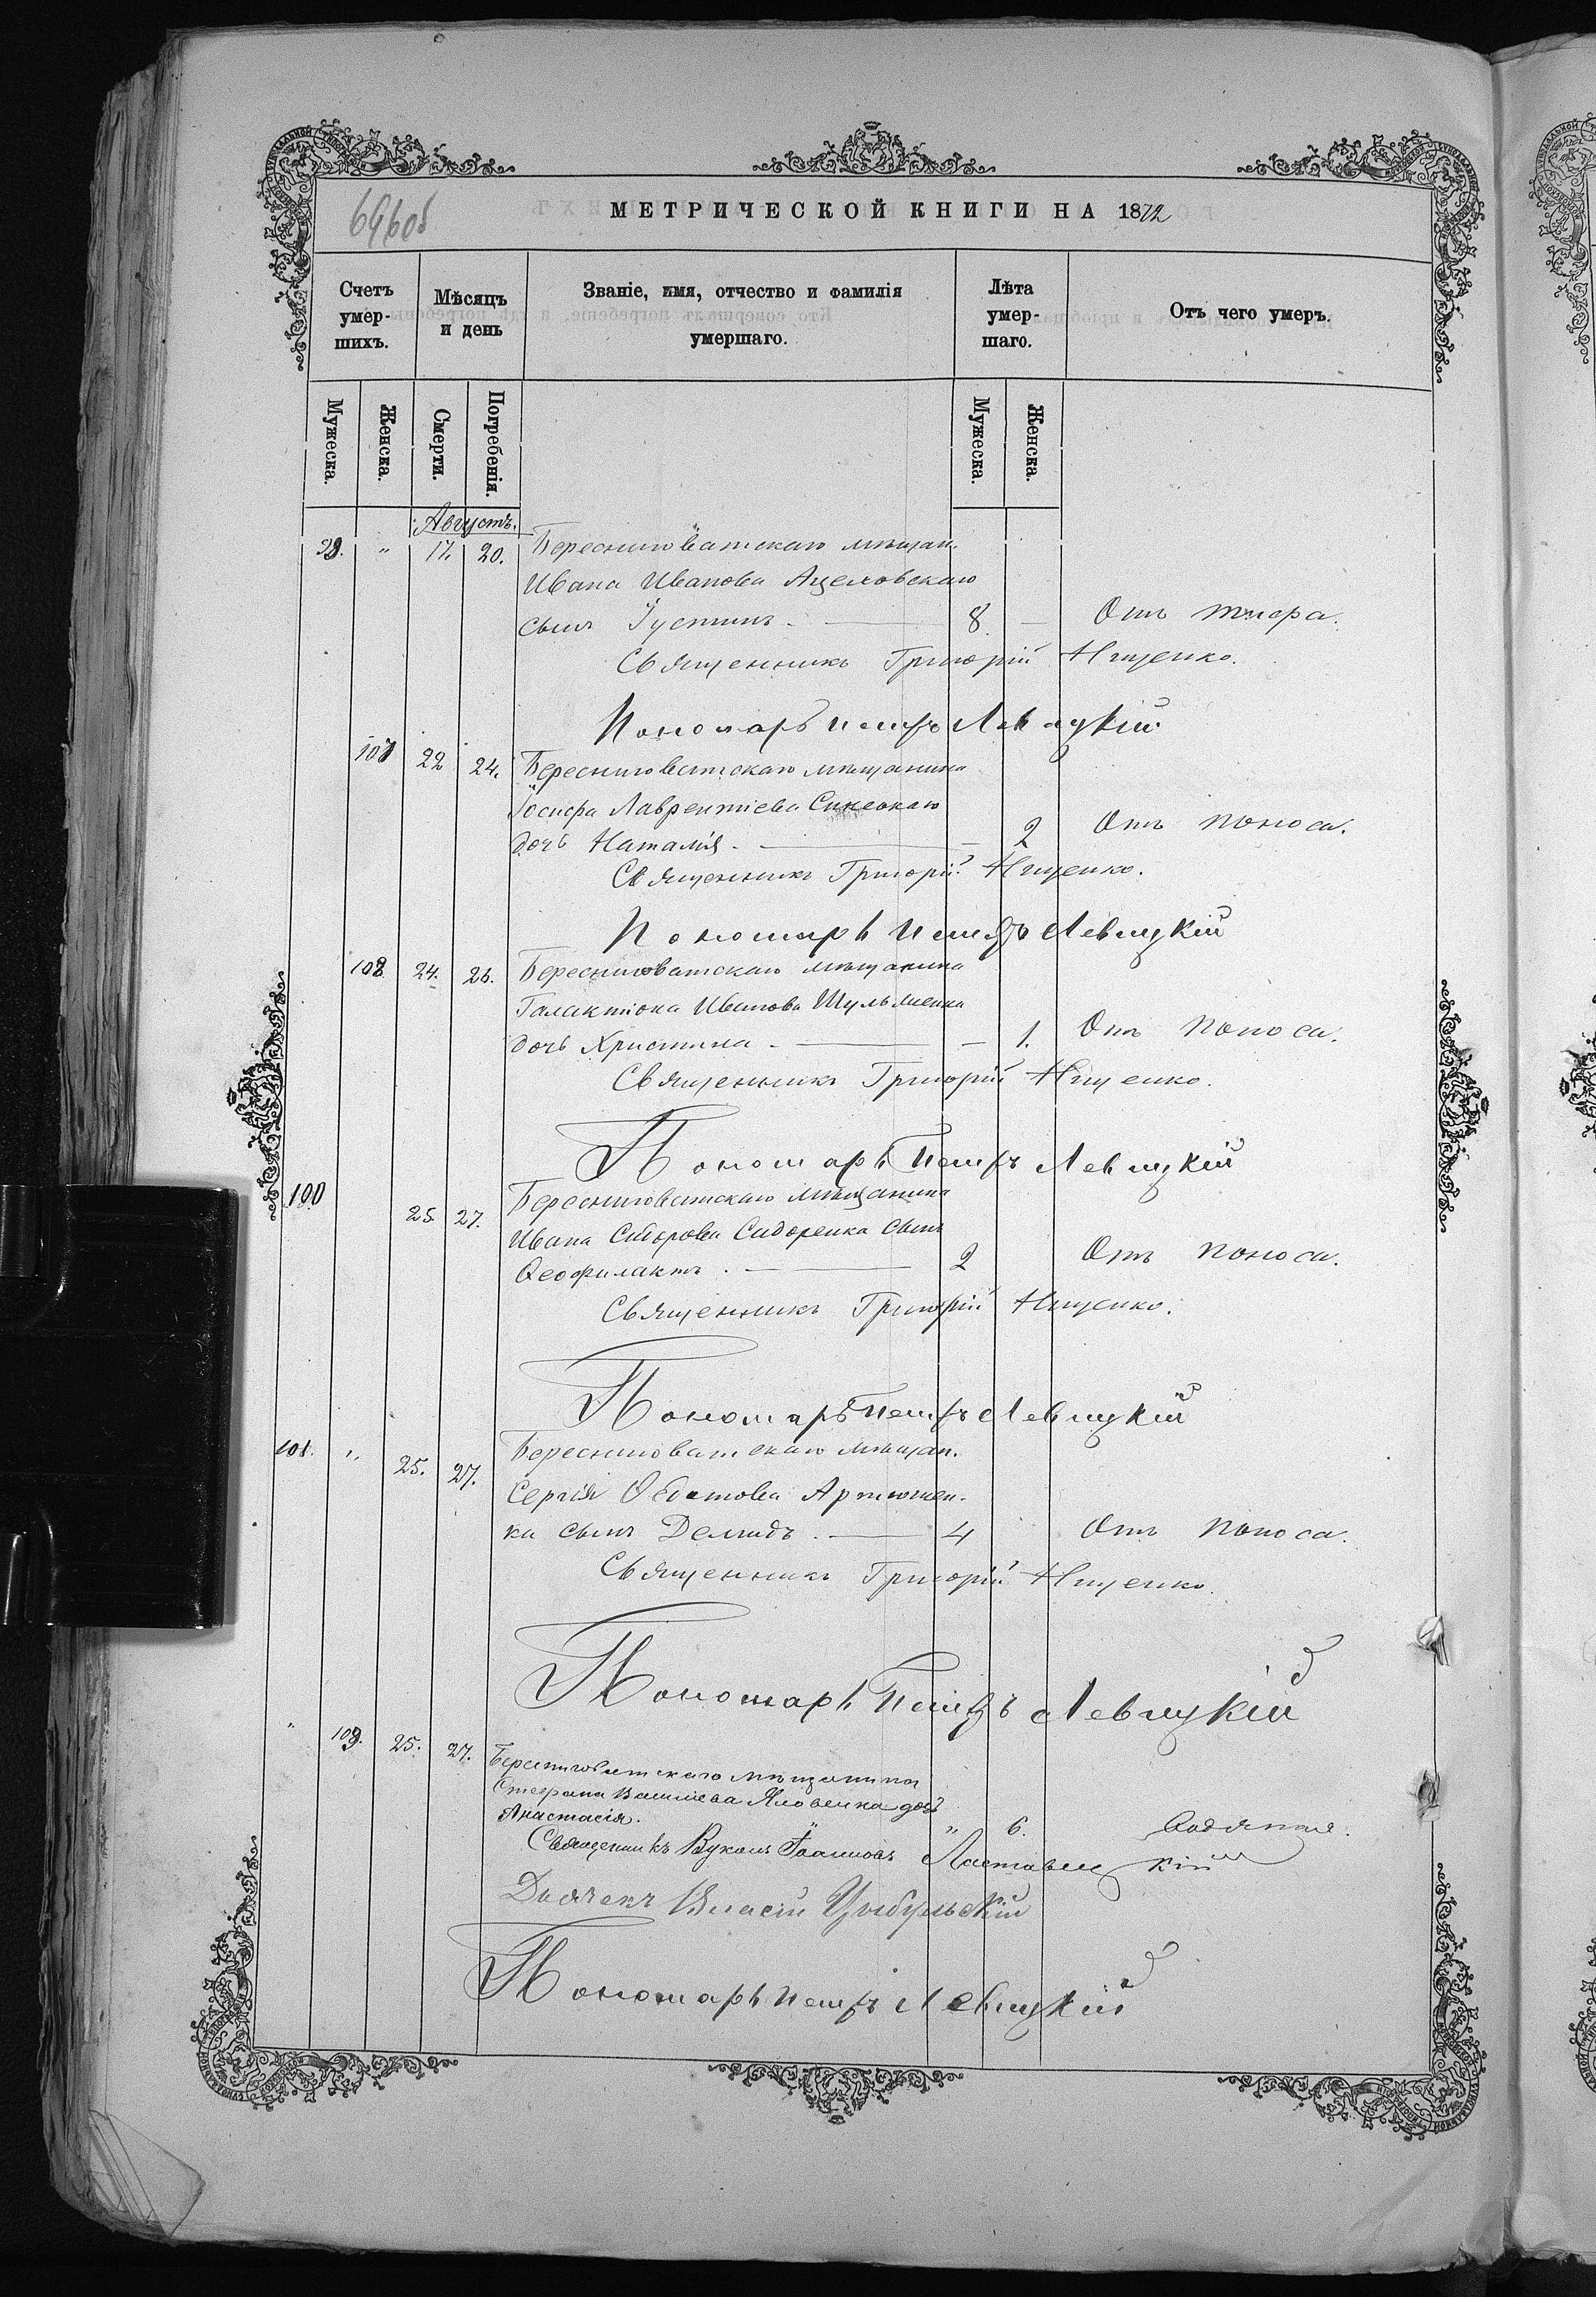 696об
МЕТРИЧЕСКОЙ КНИГИ НА 1872
Счетъ умер-шихъ.
Мѣсяцъ и день
Званіе, имя, отчество и фамилія умершаго.
Лѣта умер-шаго.
Отъ чего умеръ.
Мужеска. Женска. Смерти. Погребенія. Мужеска. Женска.
Августъ.
99. " 17. 20. Бересниговатскаго мѣщан.
Ивана Иванова
сынъ Іустинъ. — 8. — Отъ
Священникъ Григорій Нищенко.
Пономарь Петръ Левицкій
107 22 24. Бересниговатскаго мѣщанина
Іосифа Лаврентіева
дочь Наталія. — 2 Отъ поноса.
Священникъ Григорій Нищенко.
Пономарь Петръ Левицкій
108 24. 26. Бересниговатскаго мѣщанина
Галактіона Иванова Шульженка
дочь Христина. — — 1. Отъ поноса.
Священникъ Григорій Нищенко.
Пономарь Петръ Левицкій
100 25. 27. Бересниговатскаго мѣщанина
Ивана Сидорова Сидоренка сынъ
Ѳеофилактъ. — 2 Отъ поноса.
Священникъ Григорій Нищенко.
Пономарь Петръ Левицкій
101. " 25. 27. Бересниговатскаго мѣщан.
Сергія Артюшен-
ка сынъ Демидъ. — 4 Отъ поноса.
Священникъ Григорій Нищенко.
Пономарь Петръ Левицкій
" 109. 25. 27. Бересниговатскаго мѣщанина
Стефана Василіева Яковенка дочь
Анастасія. " 6. Водяная.
Священникъ Вуколъ Іоанновъ Ластавецкій
Дьячекъ Власій Цыбульскій
Пономарь Петръ Левицкій